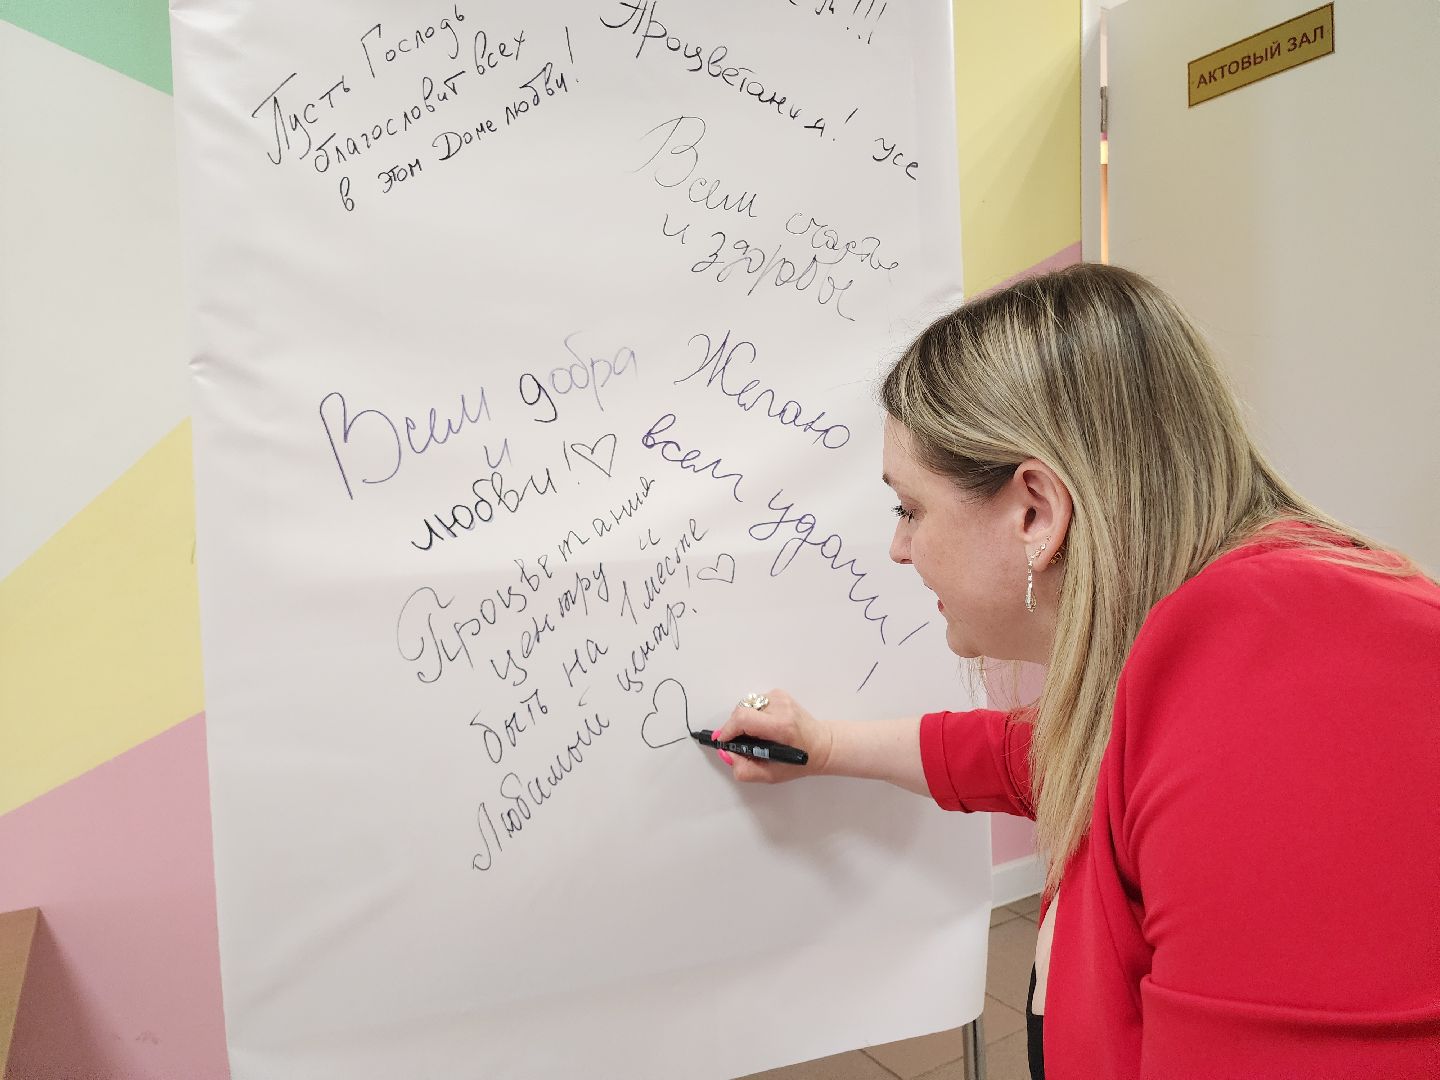 Пусть Господь
благословит всех
в этом Доме любви!
!!!
Процветания!
Всем счастье
и здоровье
АКТОВЫЙ ЗАЛ
Всем добра
и
любви!
Желаю
всем удачи!
!
Процветания
центру и
быть на 1 месте
Любимый центр!